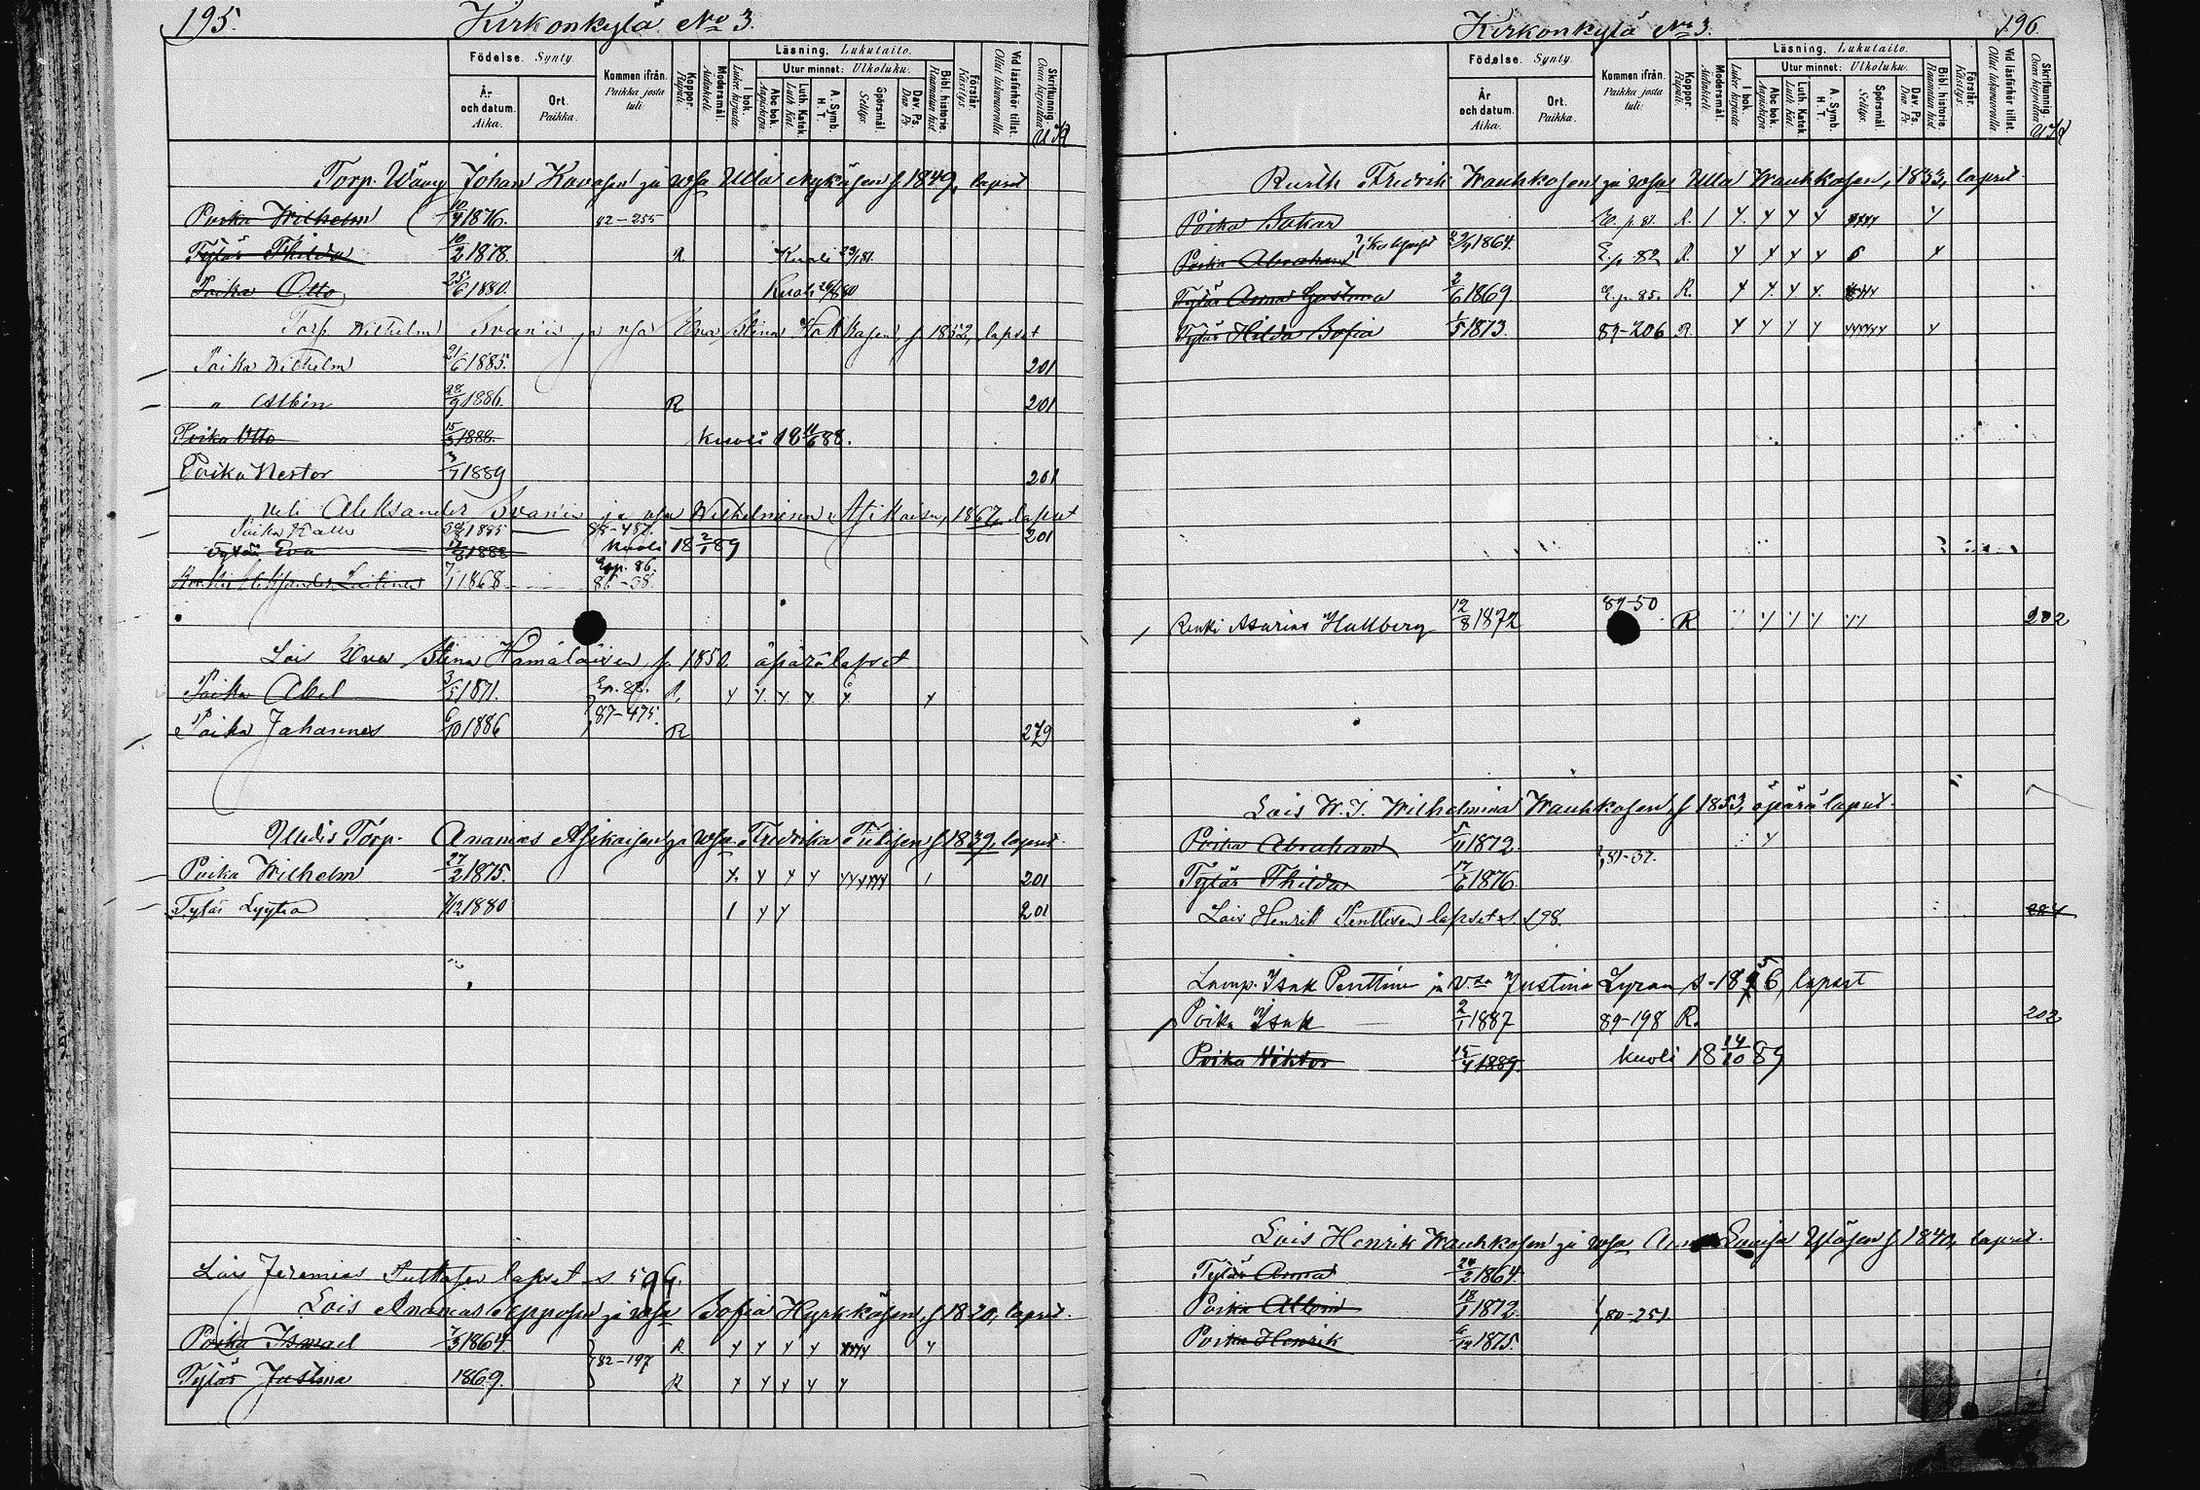 195. Kirkonkylä No 3.
Födelse. Synty.
År och datum. Aika.
Ort. Paikka.
Kommen ifrån. Paikka josta tuli:
Koppor. Rupuli.
Modersmål. Äidinkieli.
Läsning, Lukutaito.
I bok. Luku kirjasta
Utur minnet: Ulkoluku.
Abc bok. Aapiskirja.
Luth. Katek. Luth. Kat.
A. Symb. H. T.
Spörsmål. Selitys.
Dav. Ps. Dav. Ps.
Bibl. historie. Raamatun hist.
Förstår. Käsitys.
Vid läsförhör tillst. Ollut lukukunnulla
Skrifkunnig. Osaa kirjoittaa
Torp. Johan Kovasen ja vsa Ulla Nykäsen s. 1849, lapset
Poika Wilhelm 10/4 1876. 82-255
Tytär Thilda 10/2 1878. R Kuoli 29/1 81.
Poika Otto 25/6 1880. Kuoli 80
Torp Wilhelm Svanin ja vsa Eva Stina Hakkasen s 1852, lapset
Poika Wilhelm 21/6 1885. 201
" Albin 28/9 1886. R 201
Poika Otto 15/3 1888. Kuoli 18 88.
Poika Nestor 3/7 1889 201
Veli Aleksander Svanin ja vsa Wilhelmina Asikaisen, 1867, lapset
Poika Kalle 1885 88-487. 201
Tytär Eva 1888 Kuoli 18 2/1 89
Aleksander Laitinen 7/1 1868 Esp. 86. 86-38.
Lois Eva Stina Hämäläisen s. 1850. äpärälapset
Poika Abel 3/5 1871. Ep. 88. R. y y. y. y. y. y
Poika Johannes 6/10 1886 87-475. R 279
Uudis Torp. Ananias Asikaisen ja vsa Fredrika Tiilisen s 1839, lapset.
Poika Wilhelm 27/2 1875. y. y y y yyyyy 1 201
Tytär Lyytia 7/12 1880 1 y y 201
Lois Jeremias Pulkasen lapset s 594.
Lois Ananias Sepposen ja vsa Sofia Hyrkkäsen, s 1820, lapset.
Poika Ismael 7/3 1864. 82-197 R y y y y yyyy y
Tytär Justina 1869. R y y y y y
Kirkonkylä No 3. 196.
Födelse. Synty.
År och datum. Aika.
Ort. Paikka.
Kommen ifrån. Paikka josta tuli:
Koppor. Rupuli.
Modersmål. Äidinkieli.
Läsning, Lukutaito.
I bok. Luku kirjasta
Utur minnet: Ulkoluku.
Abc bok. Aapiskirja.
Luth. Katek. Luth. Kat.
A. Symb. H. T.
Spörsmål Selitys.
Dav. Ps. Dav. Ps.
Bibl. historie. Raamatun hist.
Förstår. Käsitys.
Vid läsförhör tillst. Ollut lukukunnulla
Skrifkunnig. Osaa kirjoittaa
Fredrik Wauhkosen ja vsa Ulla Wauhkosen, 1833, lapset
Poika Oskar E. p. 81. R. 1 y. y y y yyyy y
Poika Abraham 1864. E. p. 82 R. y y y y 6 y
Tytär Anna Gustava 2/6 1869. E. p. 85. R. y y y y. yyyy
Tytär Hilda Sofia 1/5 1873. 89-206 R y y y y yyyyy y
Renki Asarias Hallberg 12/8 1872 89-50 R y y y yy 202
Lois W. I. Wilhelmina Wauhkosen s 1853, äpärä lapset.
Poika Abraham 5/11 1872. y
81-37.
Tytär Thilda 17/6 1876
Lois Henrik Penttisen lapset s. 198.
Lamp. Isak Penttinen ja Vsa Justina Lyran s. 1856, lapset
Poika Isak 2/1 1887 89-198 R. 202
Poika Viktor 15/4 1889. Kuoli 18 14/10 89
Lois Henrik Wauhkosen ja vsa Lovisa Ylösen s 1840, lapset.
Tytär Anna 24/2 1864.
Poika Albin 18/1 1872. 80-251.
Poika Henrik 6/12 1875.